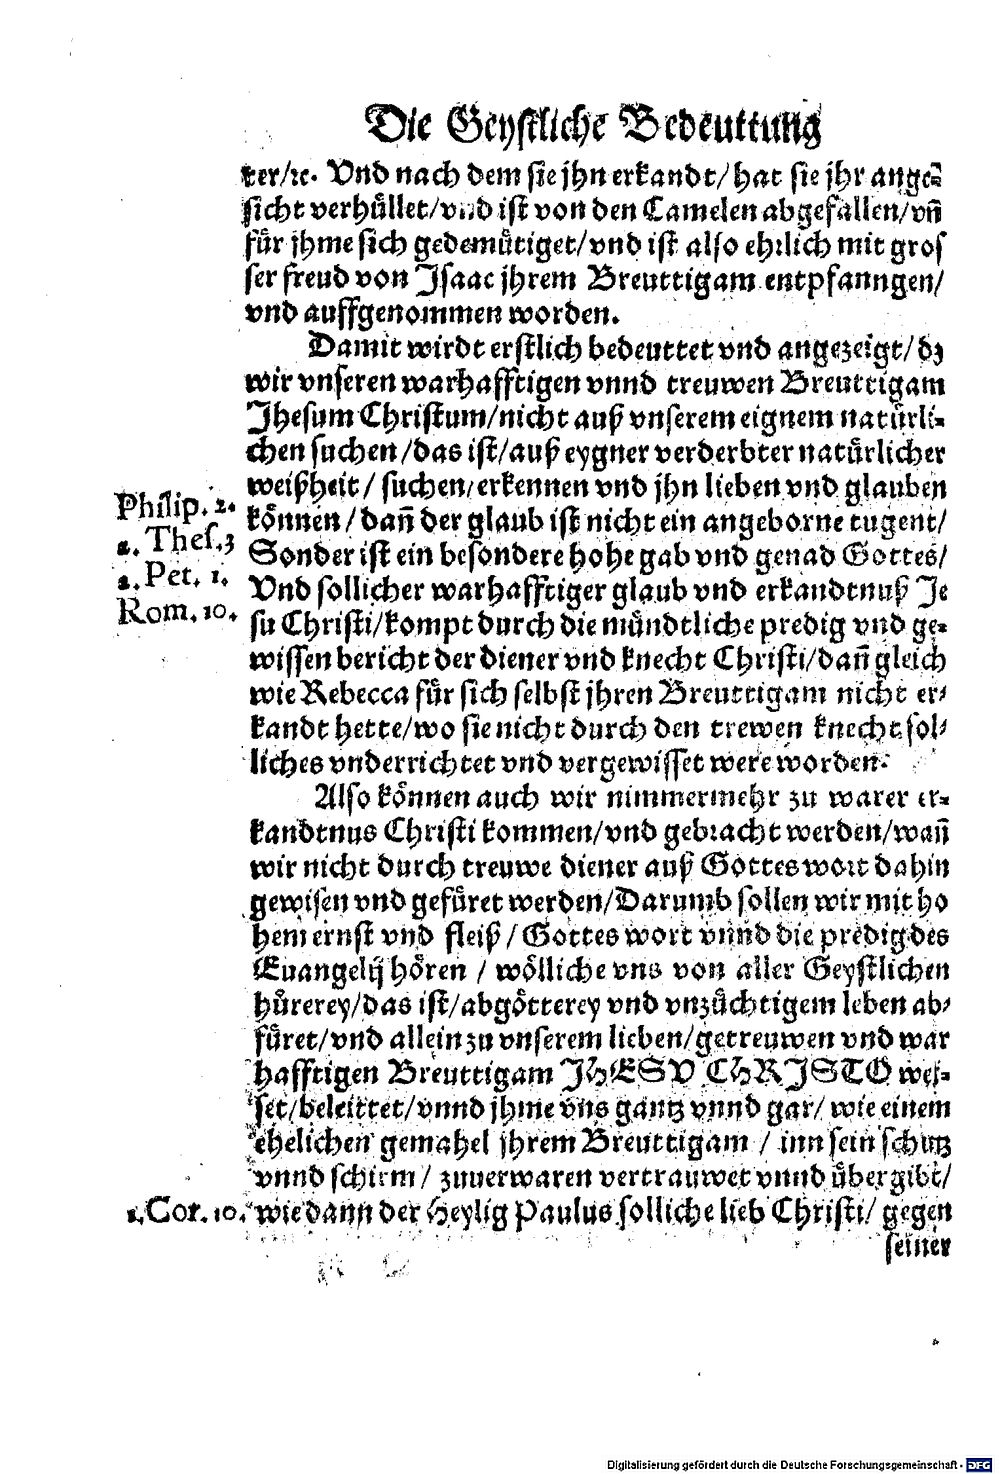 Die Geystliche Bedeuttung
ter/ꝛc. Vnd nach dem sie jhn erkandt/ hat sie jhr ange⸗
sicht verhüllet/ vnd ist von den Camelen abgefallen/ vñ
für jhme sich gedemütiget/ vnd ist also ehrlich mit gros
ser freud von Jsaac jhrem Breuttigam entpfanngen/
vnd auffgenommen worden.
Damit wirdt erstlich bedeuttet vnd angezeigt/ dz
wir vnseren warhafftigen vnnd treuwen Breuttigam
Jhesum Christum/ nicht auß vnserem eignem natürli⸗
chen suchen/ das ist/ auß eygner verderbter natürlicher
weißheit/ suchen/ erkennen vnd jhn lieben vnd glauben
Philip. 2.
können/ dañ der glaub ist nicht ein angeborne tugent/
2. Thes. 3
Sonder ist ein besondere hohe gab vnd genad Gottes/
2. Pet. 1.
Vnd sollicher warhafftiger glaub vnd erkandtnuß Je
Rom. 10.
su Christi/ kompt durch die mündtliche predig vnd ge⸗
wissen bericht der diener vnd knecht Christi/ dañ gleich
wie Rebecca für sich selbst jhren Breuttigam nicht er⸗
kandt hette/ wo sie nicht durch den trewen knecht sol⸗
liches vnderrichtet vnd vergewisset were worden.
Also können auch wir nimmermehr zu warer er⸗
kandtnus Christi kommen/ vnd gebracht werden/ wañ
wir nicht durch treuwe diener auß Gottes wort dahin
gewisen vnd gefüret werden/ Darumb sollen wir mit ho
hem ernst vnd fleiß/ Gottes wort vnnd die predig des
Euangelij hören/ wölliche vns von aller Geystlichen
hürerey/ das ist/ abgötterey vnd vnzüchtigem leben ab⸗
füret/ vnd allein zu vnserem lieben/ getreuwen vnd war
hafftigen Breuttigam JHESV CHRJSTO wei⸗
set/ beleittet/ vnnd jhme vns gantz vnnd gar/ wie einem
ehelichen gemahel jhrem Breuttigam/ inn sein schutz
vnnd schirm/ zuuerwaren vertrauwet vnnd übergibt/
1. Cor. 10.
wie dann der Heylig Paulus solliche lieb Christi/ gegen
seiner
Digitalisierung gefördert durch die Deutsche Forschungsgemeinschaft - DFG